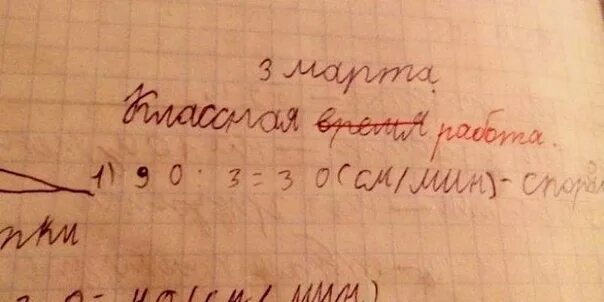 3 марта
Классная время работа.
1) 90 · 3 = 30 (см/мин) -
тки
= 40 (см/мин)